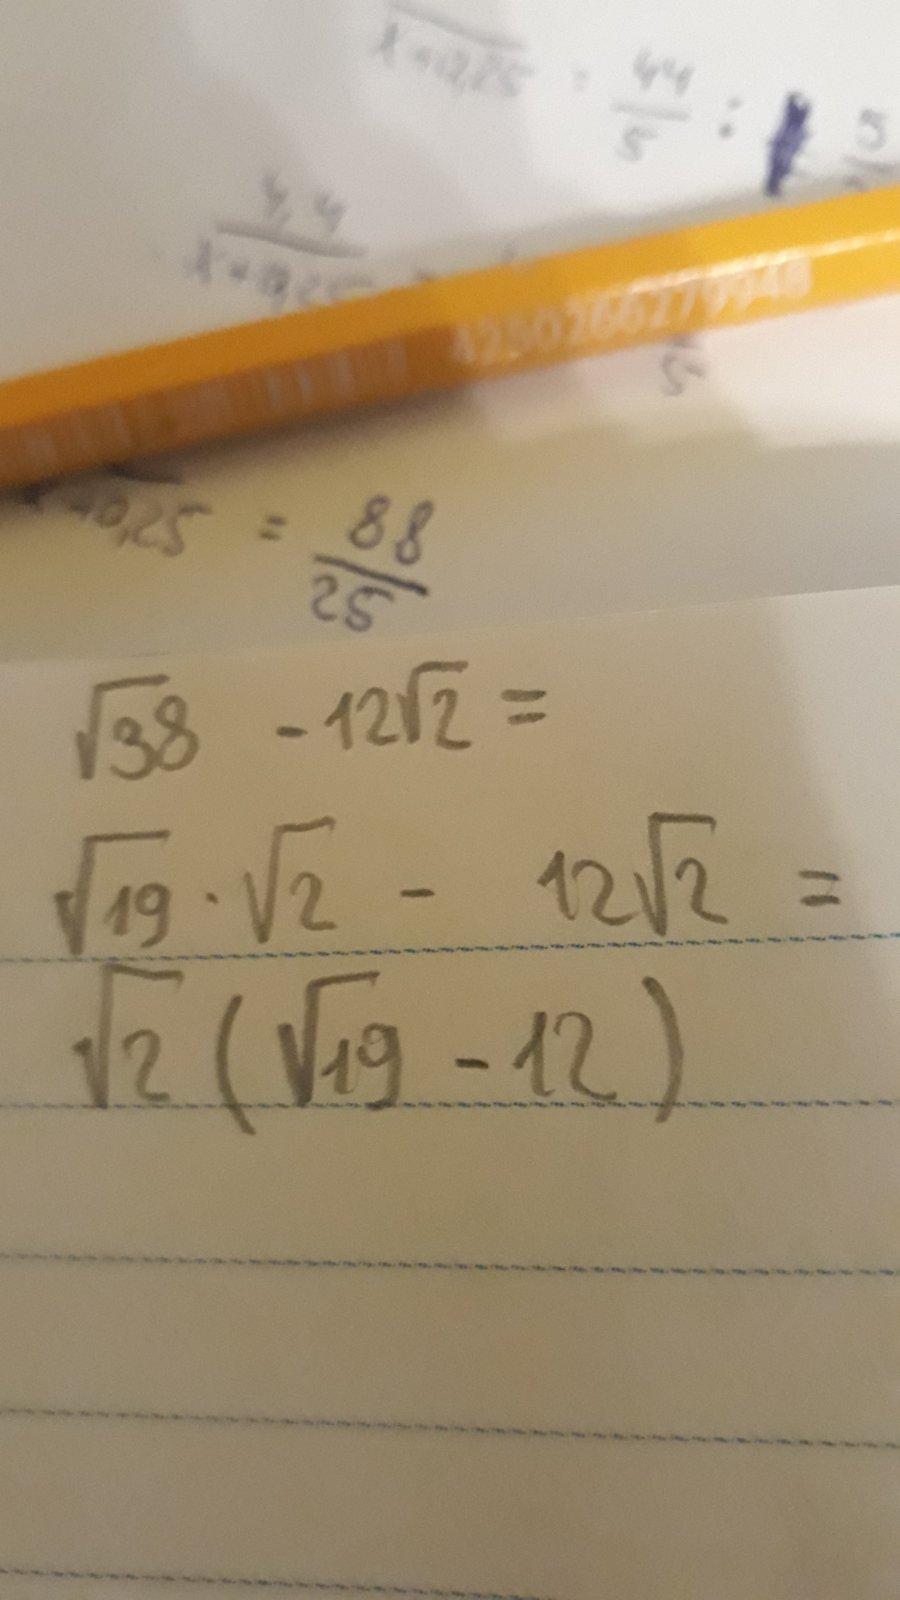 44
5
4,4
x+0,25
4250266279948
5
+0,25 = 88
25
√38 - 12√2 =
√19 · √2 - 12√2 =
√2 (√19 - 12)